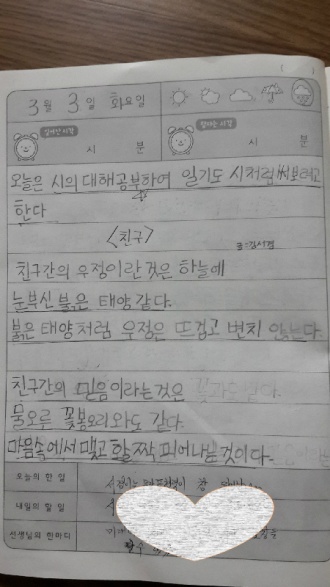 3월 3일 화요일
일어난 시각
잠자는 시각
시 분
시 분
오늘은 시의 대해공부하여 일기도 시처럼 써보려고
한다
<친구>
친구간의 우정이란 것은 하늘에
눈부신 붉은 태양 같다.
붉은 태양처럼 우정은 뜨겁고 변치 않는다.
친구간의 믿음이라는 것은
물오른 꽃봉오리와도 같다.
마음속에서 맺고 활짝 피어나는것이다.
오늘의 한 일
내일의 할 일
선생님의 한마디